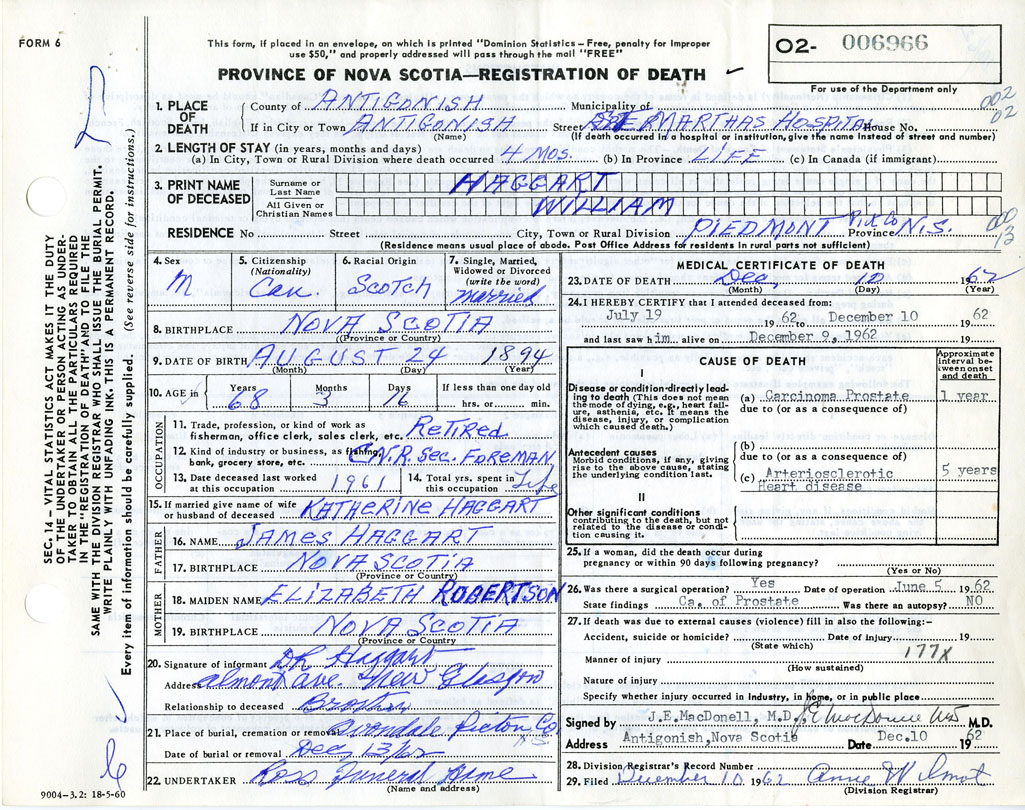 FORM 6
This form, if placed in an envelope, on which is printed "Dominion Statistics – Free, penalty for improper
use $50," and properly addressed will pass through the mail "FREE"
PROVINCE OF NOVA SCOTIA—REGISTRATION OF DEATH
O2- 006966
For use of the Department only
002
02
1. PLACE OF DEATH
County of ANTIGONISH Municipality of
If in City or Town ANTIGONISH Street MARTHAS HOSPITAL House No.
(Name) (If death occurred in hospital or institution, give the name instead of street and number)
2. LENGTH OF STAY (in years, months and days)
(a) In City, Town or Rural Division where death occurred 4 MOS. (b) In Province LIFE (c) In Canada (if immigrant)
3. PRINT NAME OF DECEASED
Surname or Last Name HAGGART
All Given or Christian Names WILLIAM
RESIDENCE No Street City, Town or Rural Division PIEDMONT Pix Co Province N.S.
000
13
(Residence means usual place of abode. Post Office Address for residents in rural parts not sufficient)
4. Sex M
5. Citizenship (Nationality) Can.
6. Racial Origin SCOTCH
7. Single, Married, Widowed or Divorced (write the word) married
8. BIRTHPLACE NOVA SCOTIA
(Province or Country)
9. DATE OF BIRTH AUGUST 24 1894
(Month) (Day) (Year)
10. AGE in Years 68 Months 3 Days 16 If less than one day old hrs. or min.
OCCUPATION
11. Trade, profession, or kind of work as
fisherman, office clerk, sales clerk, etc. RETIRED
12. Kind of industry or business, as fishing,
bank, grocery store, etc. C.N.R. SEC. FOREMAN
13. Date deceased last worked at this occupation 1961
14. Total yrs. spent in this occupation Life
15. If married give name of wife
or husband of deceased KATHERINE HAGGART
FATHER
16. NAME JAMES HAGGART
17. BIRTHPLACE NOVA SCOTIA
(Province or Country)
MOTHER
18. MAIDEN NAME ELIZABETH ROBERTSON
19. BIRTHPLACE NOVA SCOTIA
(Province or Country)
20. Signature of informant Haggart
Address almont ave. New Glasgow
Relationship to deceased Brother
21. Place of burial, cremation or removal Avondale Pictou Co
Date of burial or removal Dec 13/62
22. UNDERTAKER Ross Funeral Home
(Name and address)
MEDICAL CERTIFICATE OF DEATH
23. DATE OF DEATH Dec, 10 1962
(Month) (Day) (Year)
24. I HEREBY CERTIFY that I attended deceased from:
July 19 1962 to December 10 1962
and last saw him alive on December 9, 1962 19
CAUSE OF DEATH
Approximate interval between onset and death
I
Disease or condition directly leading to death (This does not mean
the mode of dying, e.g., heart failure, asthenia, etc. It means the
disease, injury, or complication which caused death.)
(a) Carcinoma Prostate 1 year
due to (or as a consequence of)
Antecedent causes
Morbid conditions, if any, giving
rise to the above cause, stating
the underlying condition last.
(b)
due to (or as a consequence of)
(c) Arteriosclerotic 5 years
Heart disease
II
Other significant conditions
contributing to the death, but not
related to the disease or condition causing it.
25. If a woman, did the death occur during
pregnancy or within 90 days following pregnancy?
(Yes or No)
26. Was there surgical operation? Yes Date of operation June 5 1962
State findings Ca. of Prostate Was there an autopsy? NO
27. If death was due to external causes (violence) fill in also the following:–
Accident, suicide or homicide? Date of injury 19
(State which)
177X
Manner of injury
(How sustained)
Nature of injury
Specify whether injury occurred in industry, in home, or in public place
Signed by J.E.MacDonell, M.D. M.D.
Address Antigonish,Nova Scotia Date Dec.10 1962
28. Division Registrar's Record Number
29. Filed December 10 1962 Annie Wilmot
(Division Registrar)
9004–3.2: 18-5-60
SEC. 14 – VITAL STATISTICS ACT MAKES IT THE DUTY
OF THE UNDERTAKER OR PERSON ACTING AS UNDER-
TAKER TO OBTAIN ALL THE PARTICULARS REQUIRED
IN THE "REGISTRATION OF DEATH" AND TO FILE THE
SAME WITH THE DIVISION REGISTRAR WHO SHALL ISSUE THE BURIAL PERMIT.
WRITE PLAINLY WITH UNFADING INK. THIS IS A PERMANENT RECORD.
Every item of information should be carefully supplied. (See reverse side for instructions.)